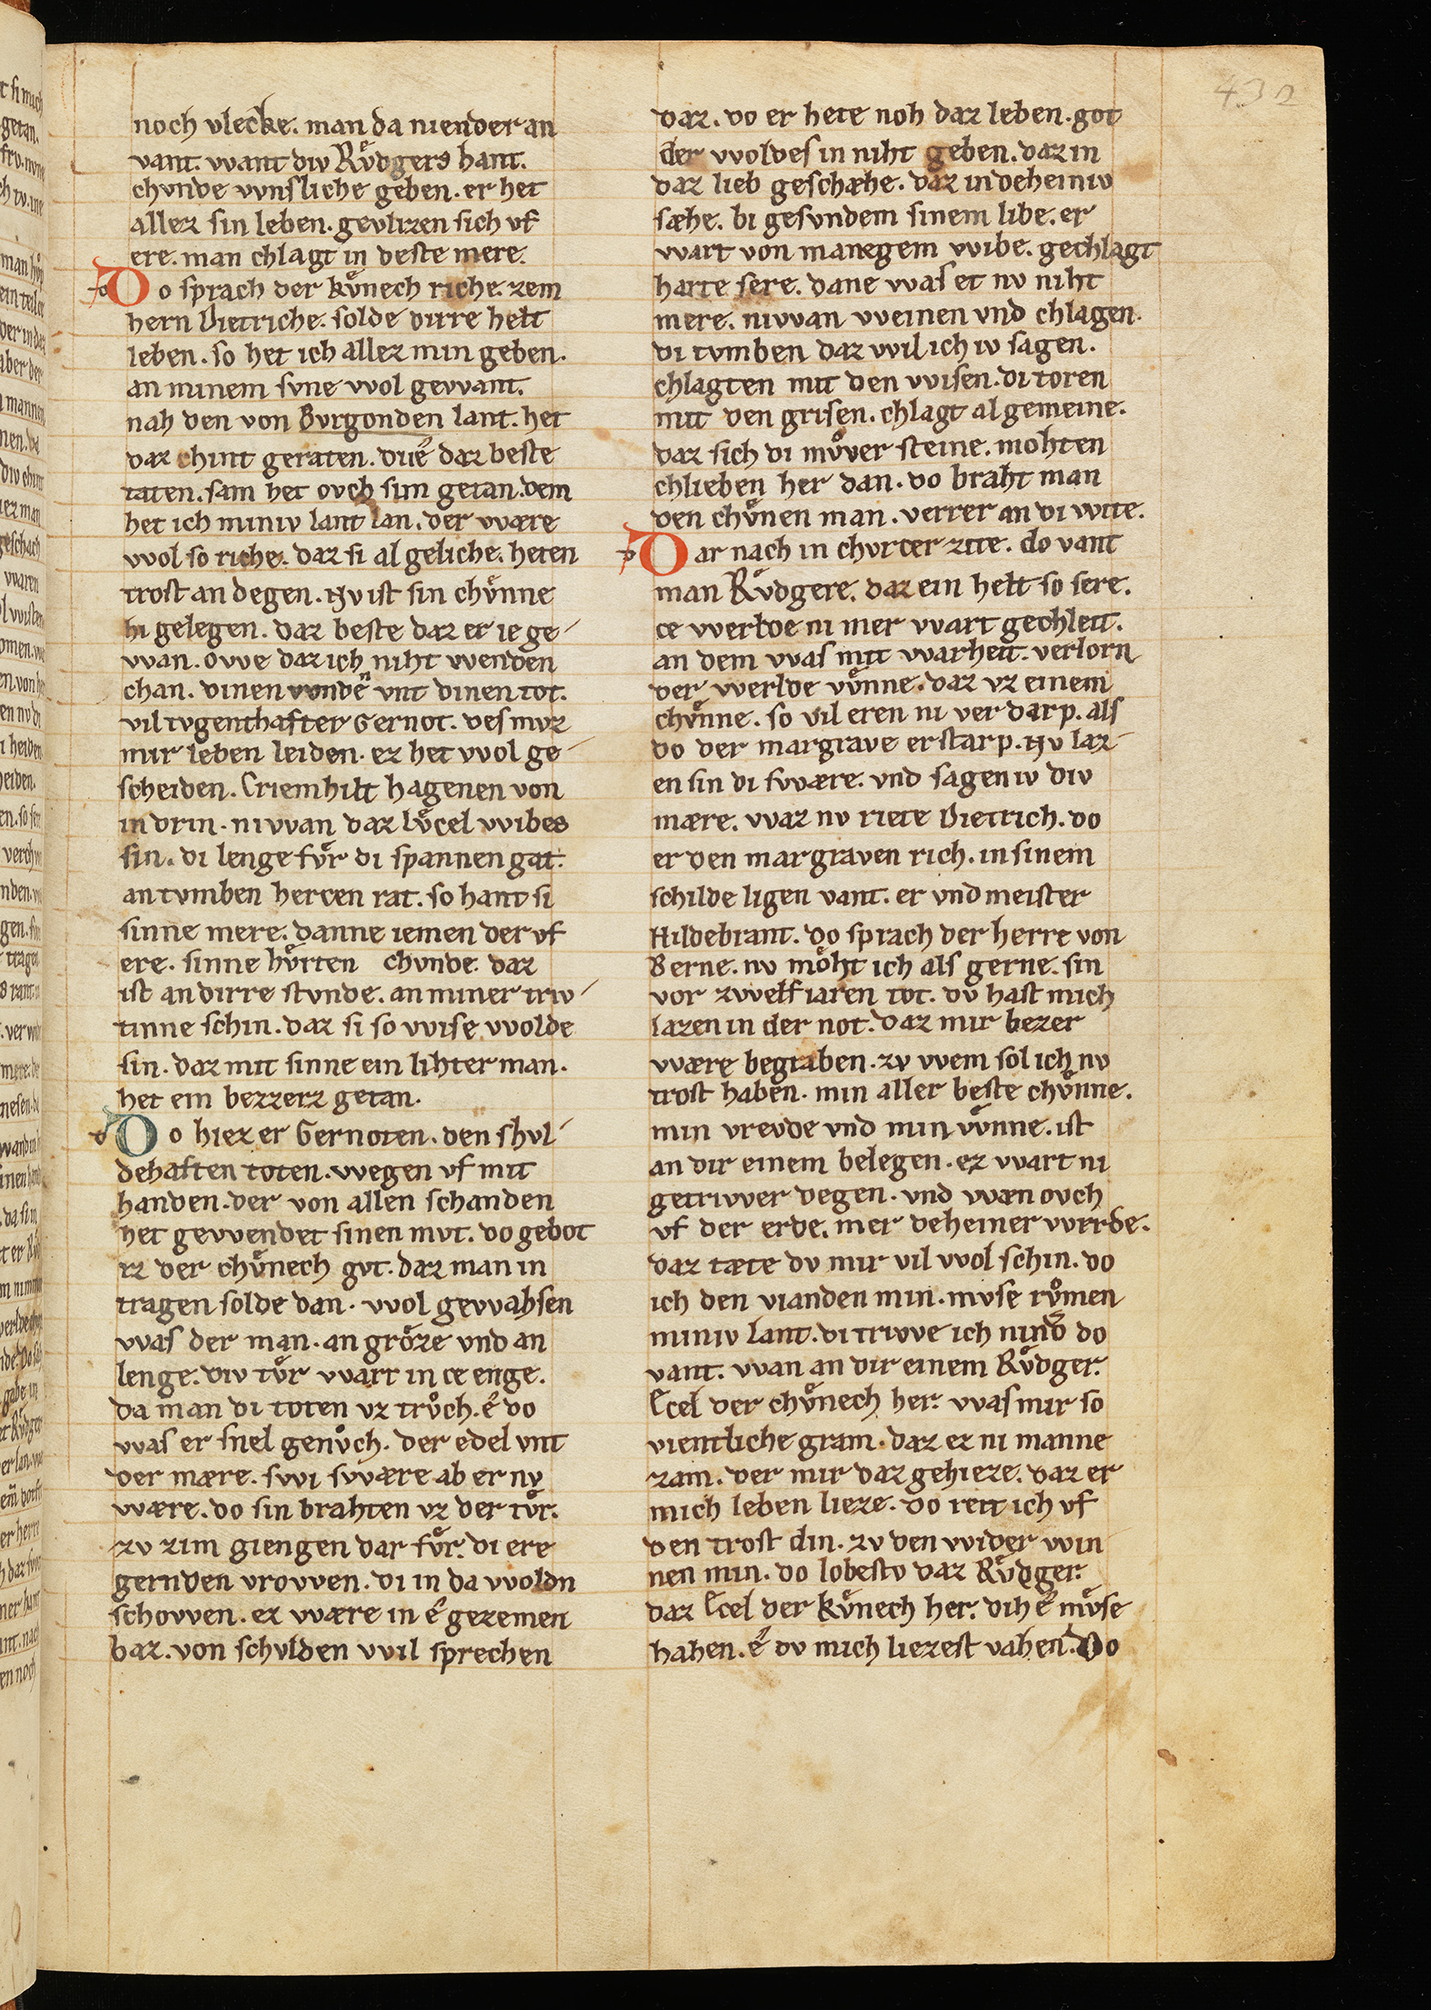 432
noch vlecke. man da niender an
vant. want div Rvͤdgers hant.
chvnde wnsliche geben. er het
allez sin leben. gevlizen sich vf
ere. man chlagt in deste mere.
Do sprach der kvͤnech riche. zem
hern Dietriche. solde dirre helt
leben. so het ich allez min geben.
an minem svne wol gewant.
nah den von Bvrgonden lant. het
daz chint geraten. due daz beste
taten. sam het ovch sim getan. dem
het ich miniv lant lan. der wære
wol so riche. daz si al geliche. heten
trost an degen. Nv ist sin chvͤnne
hi gelegen. daz beste daz er ie ge-
wan. owe daz ich niht wenden
chan. dinen vunden̄ vnt dinen tot.
vil tvgenthafter Gernot. des mvz
mir leben leiden. ez het wol ge-
scheiden. Criemhilt hagenen von
in drin. niwan daz lvͤcel wibes
sin. di lenge fvͤr di spannen gat.
an tvmben hercen rat. so hant si
sinne mere. danne iemen der vf
ere. sinne hvͤrten chvnde. daz
ist an dirre stvnde. an miner triv-
tinne schin. daz si so wise wolde
sin. daz mit sinne ein lihter man.
het ein bezzerz getan.
Do hiez er Gernoten. den shvl-
dehaften toten. wegen vf mit
handen. der von allen schanden
het gewendet sinen mvt. do gebot
iz der chvͤnech gvt. daz man in
tragen solde dan. wol gewahsen
was der man. an grôze vnd an
lenge. div tvͤr wart in ce enge.
da man di toten vz trvͦch. é do
was er snel genvͦch. der edel vnt
der mære. swi swære ab er nv
wære. do sin brahten vz der tvͤr.
zv zim giengen dar fvͤr. di ere
gernden vrowen. di in da woldn
schowen. ez wære in é gezemen
baz. von schvlden wil sprechen
daz. do er hete noh daz leben. got
der woldes in niht geben. daz in
daz lieb geschæhe. daz in deheiniv
sæhe. bi gesvndem sinem libe. er
wart von manegem wibe. gechlagt
harte sere. dane was et nv niht
mere. niwan weinen vnd chlagen.
di tvmben daz wil ich iv sagen.
chlagten mit den wisen. di toren
mit den grisen. chlagt al gemeine.
daz sich di mvͦver steine. mohten
chlieben her dan. do braht man
den chvͤnen man. verrer an di wite.
Dar nach in chvrcer zite. do vant
man Rvͤdgere. daz ein helt so sere.
ce werlde ni mer wart gechleit.
an dem was mit warheit. verlorn
der werlde vvͤnne. daz vz einem
chvͤnne. so vil eren ni verdarp. als
do der margrave erstarp. Nv laz-
en sin di swære. vnd sagen iv div
mære. waz nv riete Dietrich. do
er den margraven rich. in sinem
schilde ligen vant. er vnd meister
Hildebrant. Do sprach der herre von
Berne. nv môht ich als gerne. sin
vor zwelf iaren tot. dv hast mich
lazen in der not. daz mir bezer
wære begraben. zv wem sol ich nv
trost haben. min aller beste chvͤnne.
min vrevde vnd min vvͤnne. ist
an dir einem belegen. ez wart ni
getriwer degen. vnd wæn ovch
vf der erde. mer deheiner werde.
daz tæte dv mir vil wol schin. do
ich den vianden min. mvse rvͦmen
miniv lant. di triwe ich nind͛ do
vant. wan an dir einem Rvͤdger.
Ecel der chvͤnech her. was mir so
vientliche gram. daz ez ni manne
zam. der mir daz gehieze. daz er
mich leben lieze. do reit ich vf
den trost din. zv den wider win
nen min. do lobestv daz Rvͤdger.
daz Ecel der kvͤnech her. dih é mvͤse
hahen. é dv mich liezest vahen. Do